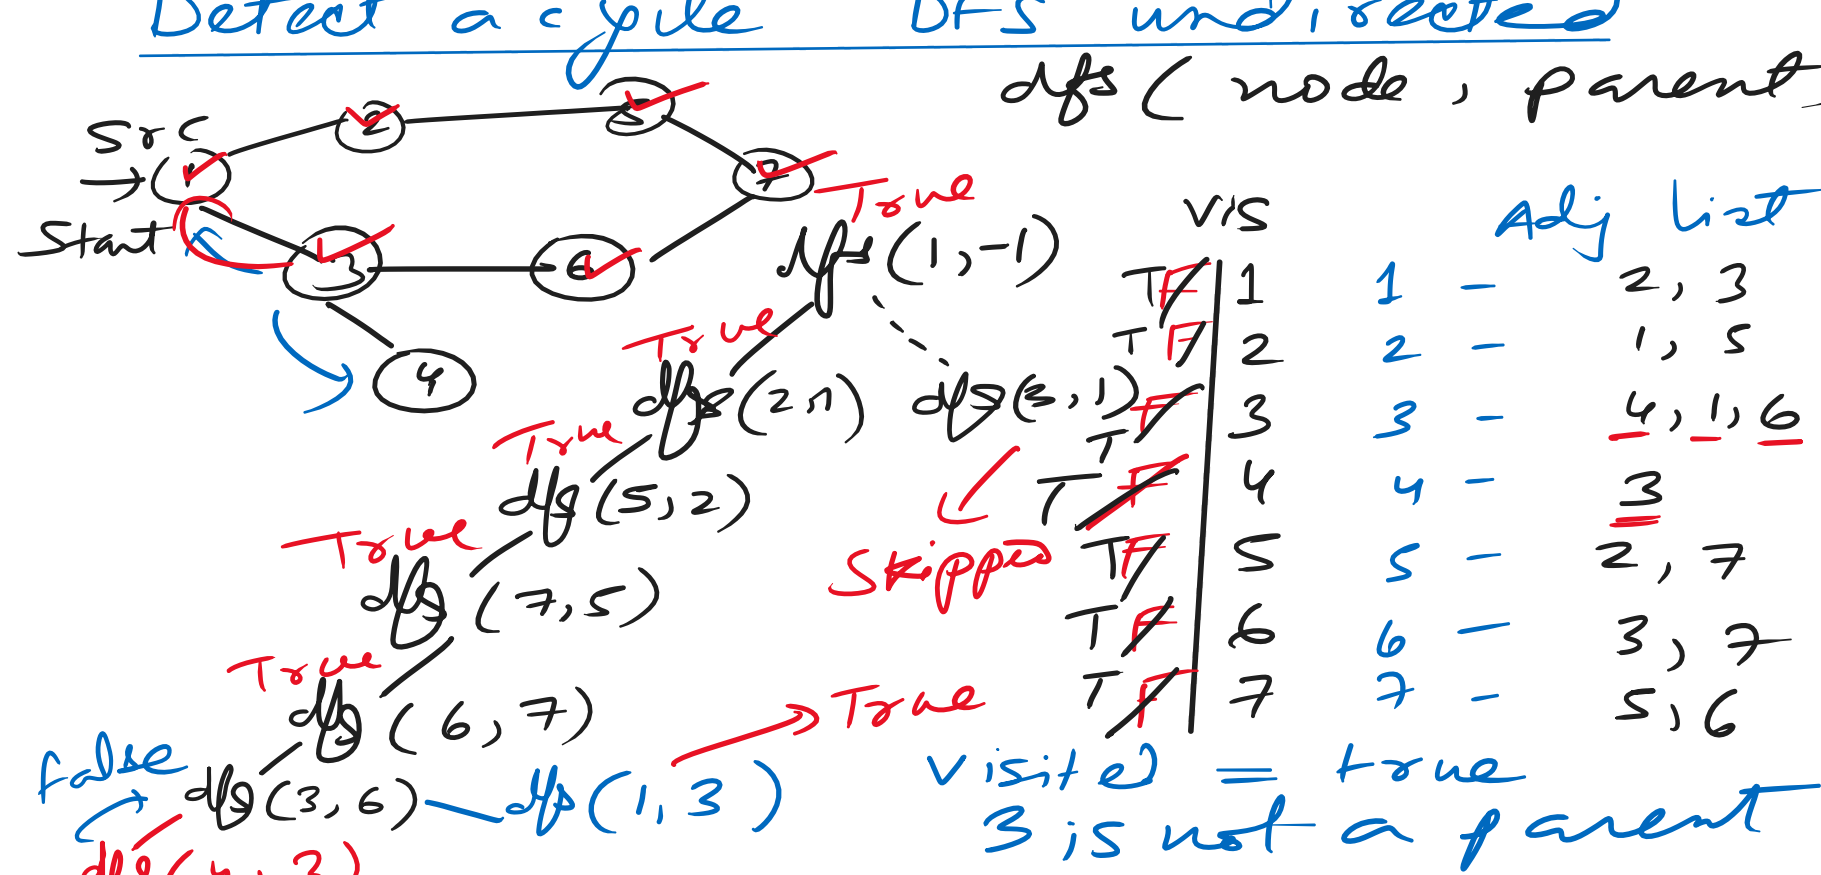 Detect a cycle DFS undirected
dfs ( node , parent
Src
1
2
5
7
Start
3
6
4
True
dfs (1, -1)
True
dfs (2,1)
dfs (3,1)
True
dfs (5,2)
Skipped
True
dfs (7,5)
True
dfs (6,7)
True
False
dfs (3,6)
dfs (1,3)
dfs (4,3)
Vis
Adj list
T F 1
1 - 2, 3
T F 2
2 - 1, 5
T F 3
3 - 4, 1, 6
T F 4
4 - 3
T F 5
5 - 2, 7
T F 6
6 - 3, 7
T F 7
7 - 5, 6
Visited = true
3 is not a parent